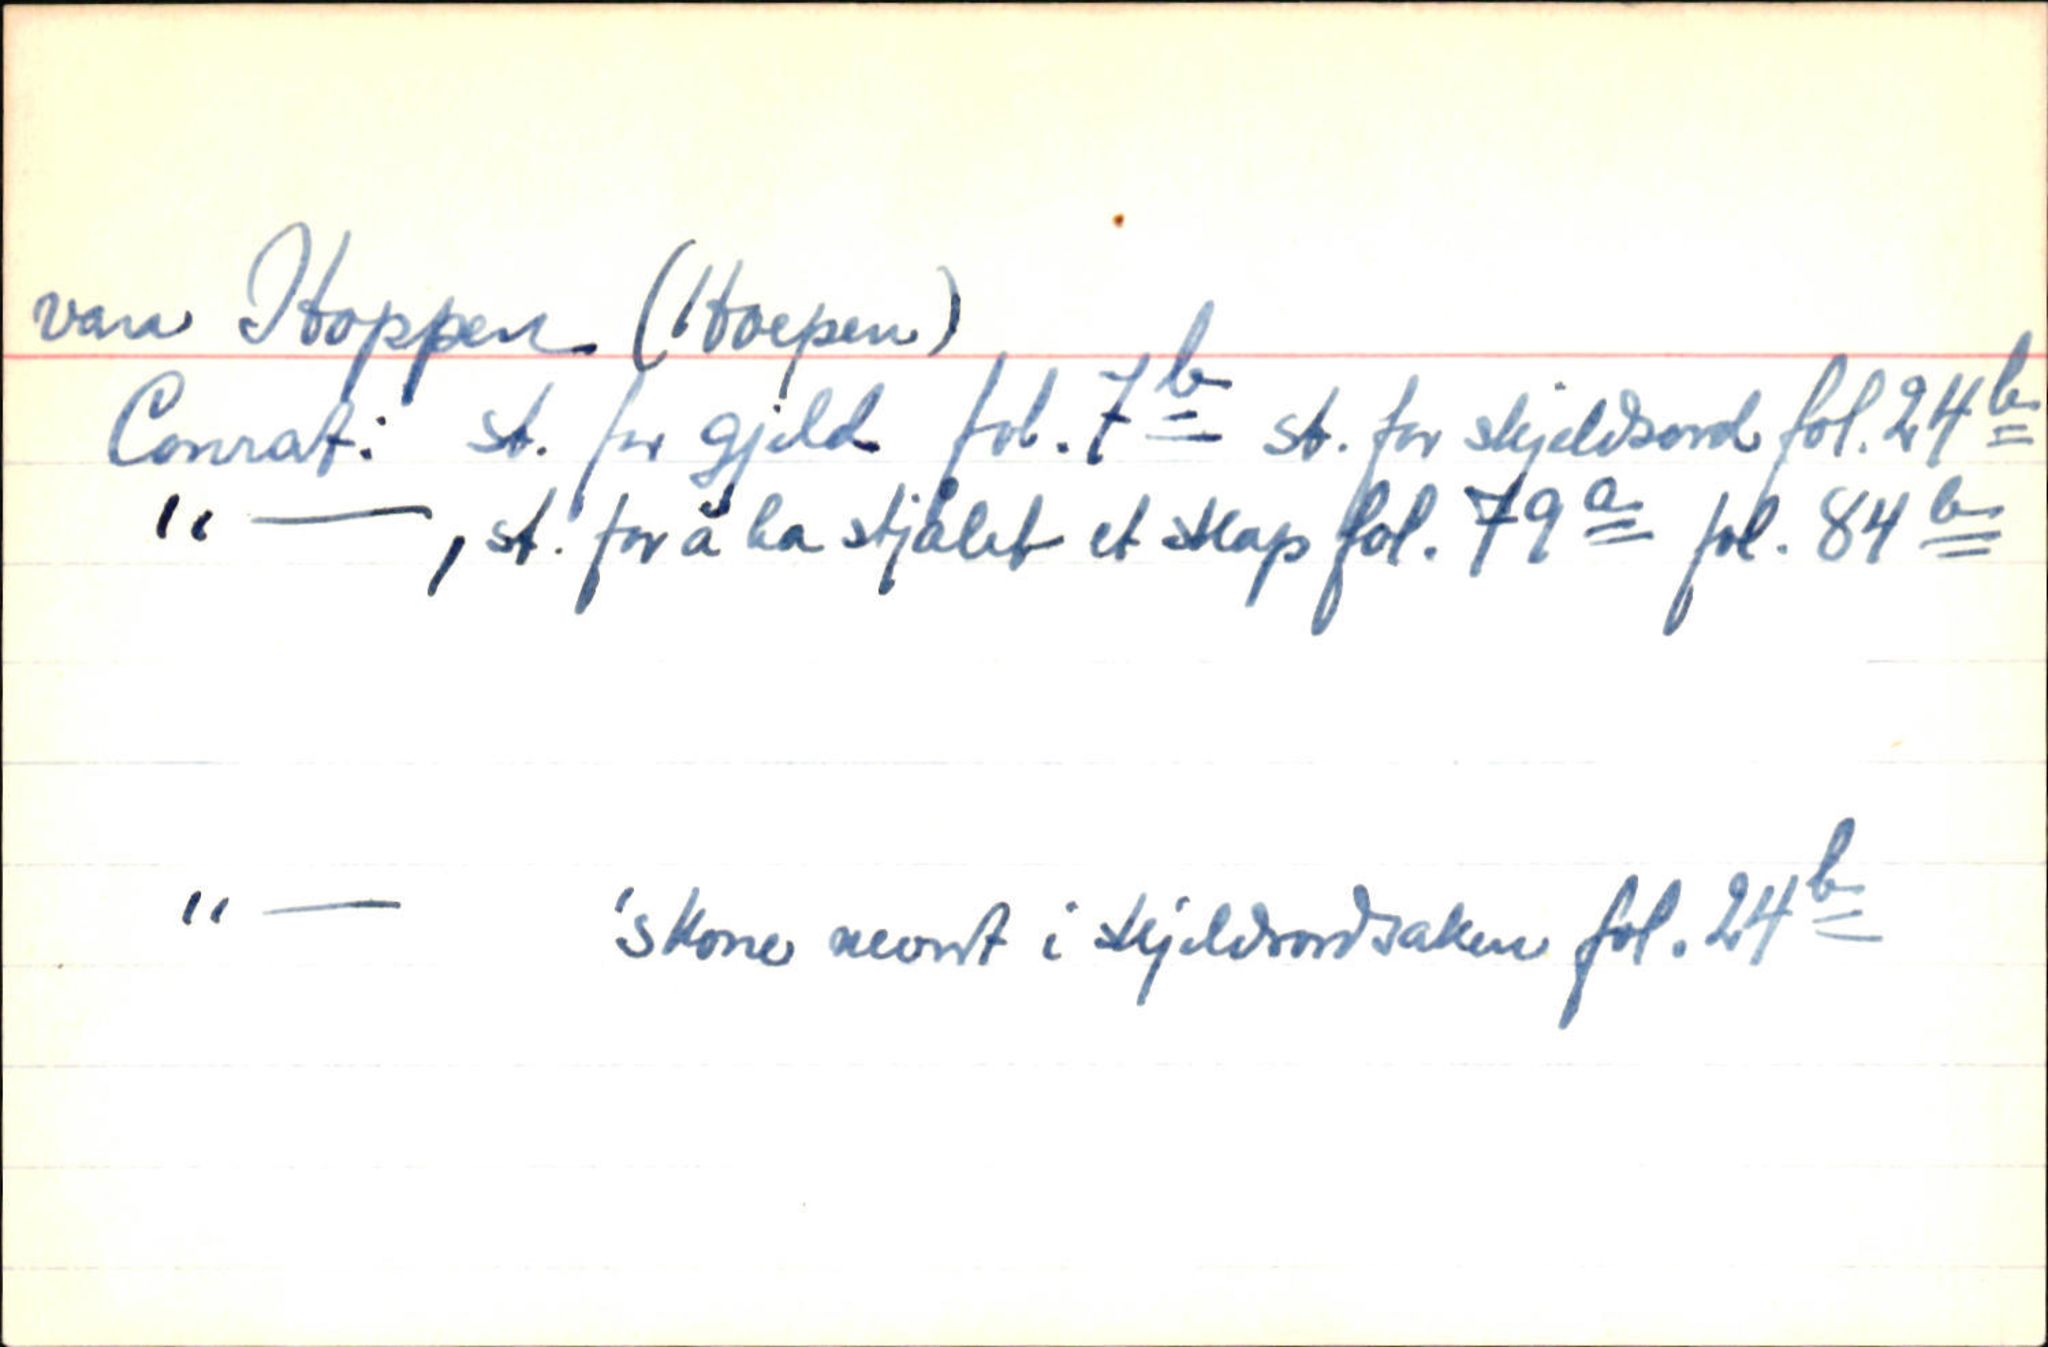 van Hoppen (Hoepen)
Conrat: st. for gjeld fol. 7b st. for skjeldsord fol. 24b
" —, st. for å ha stjålet et skap fol. 79a fol. 84b
" — 's kone nevnt i skjeldsordsaken fol. 24b